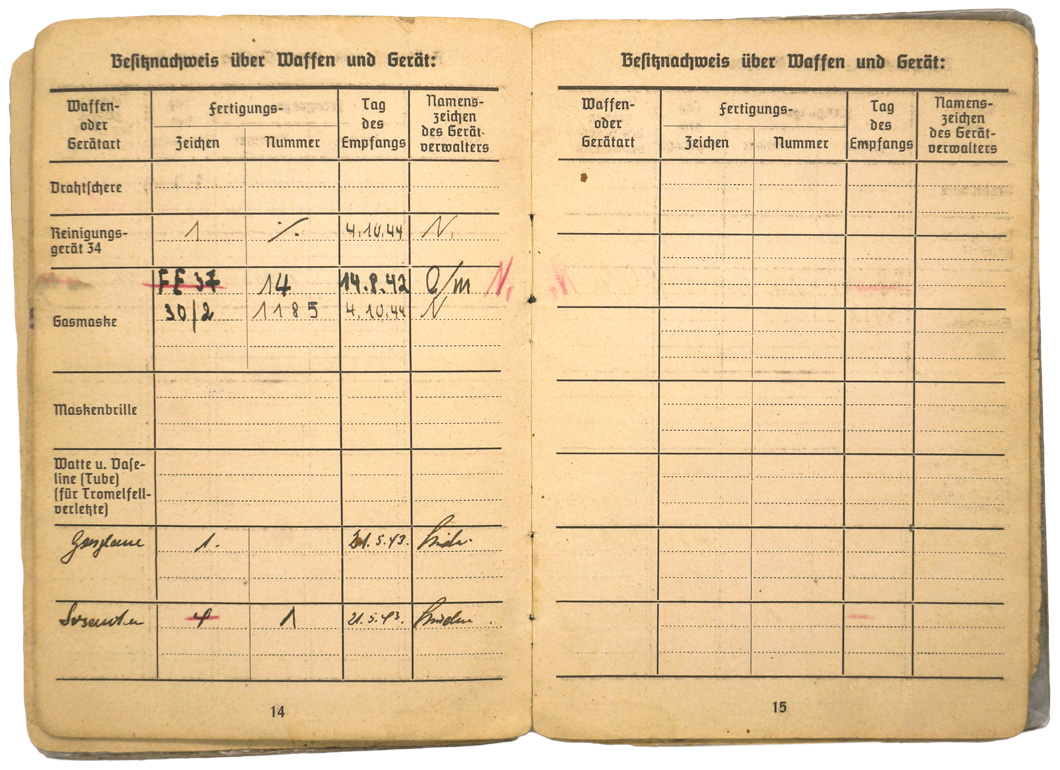 Besitznachweis über Waffen und Gerät:
Waffen-
oder
Gerätart
Fertigungs-
Zeichen
Nummer
Tag
des
Empfangs
Namens-
zeichen
des Gerät-
verwalters
Drahtschere
Reinigungs-
gerät 34
1 ./. 4.10.44 N.
FE 37 14 14.9.42 O/m N.
Gasmaske
30/2 1185 4.10.44 N
Maskenbrille
Watte u. Vase-
line (Tube)
(für Tromelfell-
verletzte)
Gasplane 1. 21.5.43.
1 21.5.43.
14
Besitznachweis über Waffen und Gerät:
Waffen-
oder
Gerätart
Fertigungs-
Zeichen
Nummer
Tag
des
Empfangs
Namens-
zeichen
des Gerät-
verwalters
15